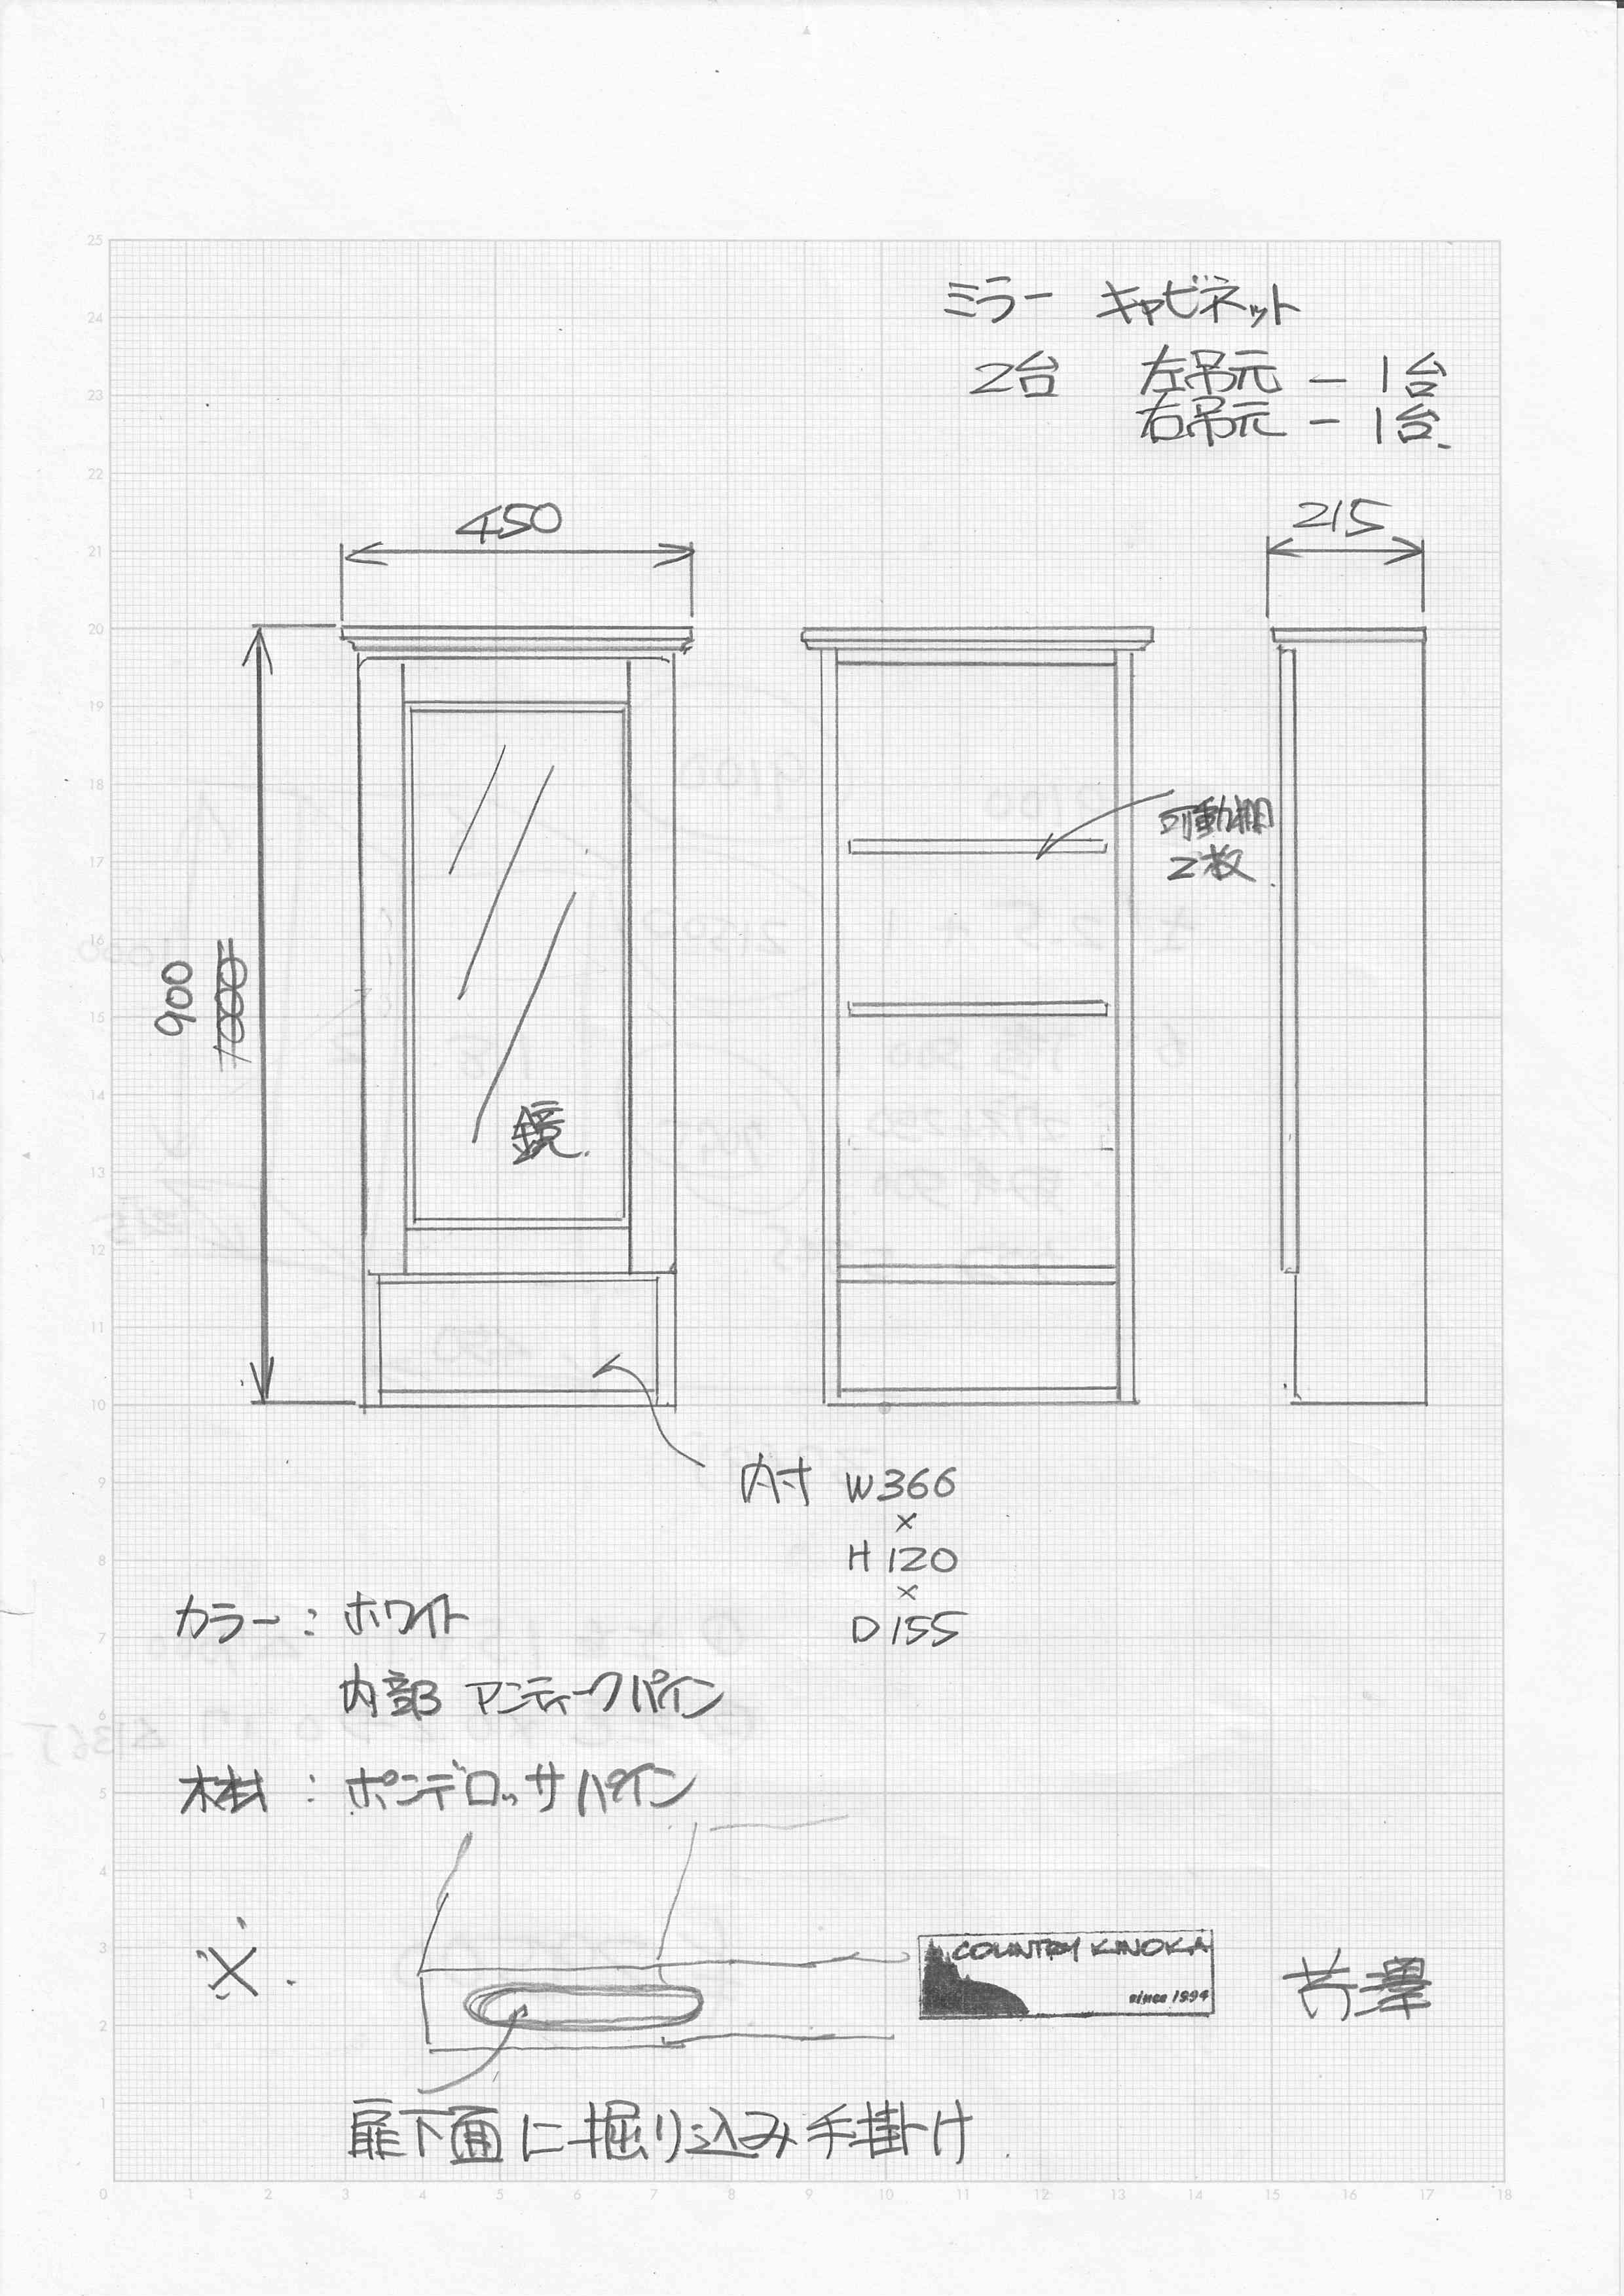 ミラー キャビネット
2台 左吊元 - 1台
右吊元 - 1台.
450
215
900
1000
可動棚
2枚.
鏡.
内寸 W366
×
H120
×
D155
カラー: ホワイト
内部 アンティークパイン
木材: ポンデロッサパイン
※.
COUNTRY KINOKA
since 1994
芳澤
扉下面に掘り込み手掛け
25
24
23
22
21
20
19
18
17
16
15
14
13
12
11
10
9
8
7
6
5
4
3
2
1
0 1 2 3 4 5 6 7 8 9 10 11 12 13 14 15 16 17 18